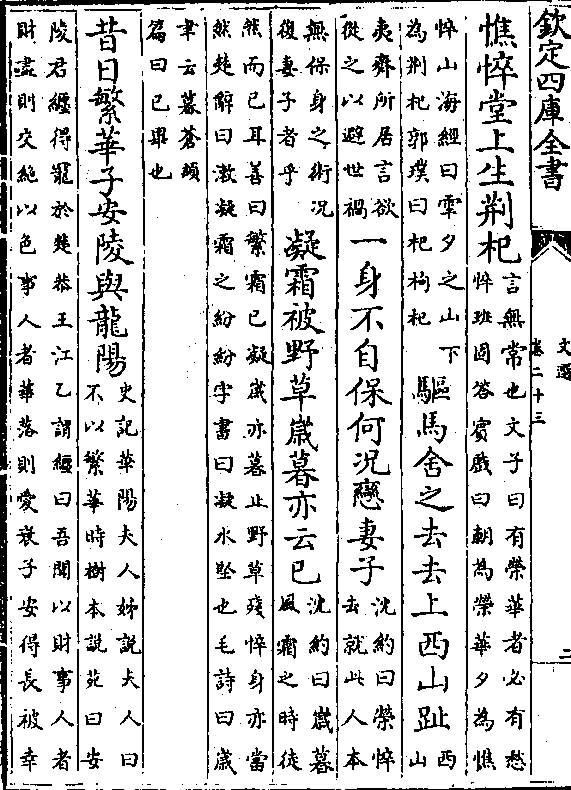 欽定四庫全書
文選
卷二十三
二
憔悴堂上生荆杞
言無常也文子曰有榮華者必有愁
悴班固答賓戲曰朝為榮華夕為憔
悴山海經曰雩夕之山下
為荆杞郭璞曰杞枸杞
驅馬舍之去去上西山趾
西
山
夷齊所居言欲
從之以避世禍
一身不自保何況戀妻子
沈約曰榮悴
去就此人本
無保身之術況
復妻子者乎
凝霜被野草歲暮亦云已
沈約曰歲暮
風霜之時徒
然而已耳善曰繁霜已凝歲亦暮止野草殘悴身亦當
然楚辭曰漱凝霜之紛紛字書曰凝氷堅也毛詩曰歲
聿云暮蒼頡
篇曰已畢也
昔日繁華子安陵與龍陽
史記華陽夫人姊説夫人曰
不以繁華時樹本説苑曰安
陵君纏得寵於楚恭王江乙謂纏曰吾聞以財事人者
財盡則交絶以色事人者華落則愛衰子安得長被幸